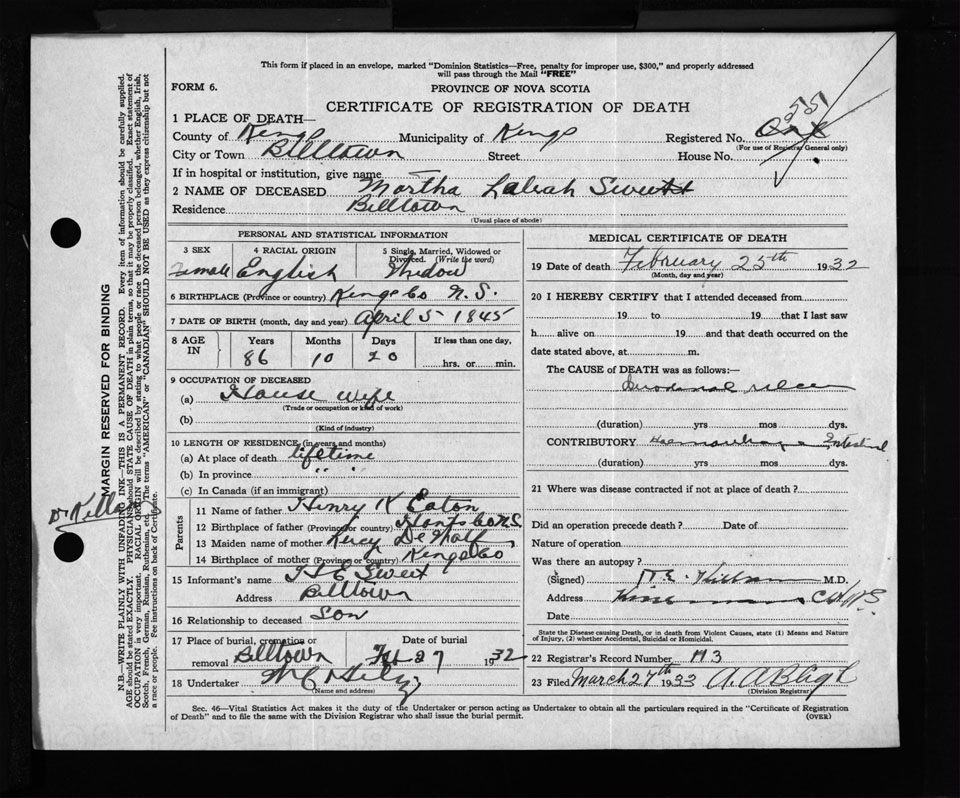 This form if placed in an envelope, marked "Dominion Statistics—Free, penalty for improper use, $300," and properly addressed
will pass through the Mail "FREE"
FORM 6.
PROVINCE OF NOVA SCOTIA
CERTIFICATE OF REGISTRATION OF DEATH
1 PLACE OF DEATH—
County of Kings Municipality of Kings Registered No. 551
(For use of Registrar General only)
City or Town Billtown Street House No.
If in hospital or institution, give name
2 NAME OF DECEASED Martha Laleah Sweet
Residence Billtown
(Usual place of abode)
PERSONAL AND STATISTICAL INFORMATION
3 SEX 4 RACIAL ORIGIN 5 Single, Married, Widowed or
Divorced. (Write the word)
Female English Widow
6 BIRTHPLACE (Province or country) Kings Co N.S.
7 DATE OF BIRTH (month, day and year) April 5 1845
8 AGE IN Years Months Days If less than one day,
86 10 20 hrs. or min.
9 OCCUPATION OF DECEASED
(a) House wife
(Trade or occupation or kind of work)
(b)
(Kind of industry)
10 LENGTH OF RESIDENCE (in years and months)
(a) At place of death lifetime
(b) In province " "
(c) In Canada (if an immigrant)
Parents
11 Name of father Henry K Eaton
12 Birthplace of father (Province or country) Hants Co N.S.
13 Maiden name of mother Lucy DeWolf
14 Birthplace of mother (Province or country) Kings Co
15 Informant's name H E Sweet
Address Billtown
16 Relationship to deceased Son
17 Place of burial, cremation or Date of burial
removal Billtown Feb 27 1932
18 Undertaker
(Name and address)
MEDICAL CERTIFICATE OF DEATH
19 Date of death February 25th 1932
(Month, day and year)
20 I HEREBY CERTIFY that I attended deceased from
19 to 19 that I last saw
h alive on 19 and that death occurred on the
date stated above, at m.
The CAUSE of DEATH was as follows:—
Duodenal ulcer
(duration) yrs mos dys.
CONTRIBUTORY Haemorrhage Intestinal
(duration) yrs mos dys.
21 Where was disease contracted if not at place of death?
Did an operation precede death? Date of
Nature of operation
Was there an autopsy?
(Signed) Killam M.D.
Address N.S.
Date
State the Disease causing Death, or in death from Violent Causes, state (1) Means and Nature
of Injury, (2) whether Accidental, Suicidal or Homicidal.
22 Registrar's Record Number M3
23 Filed March 27th 1933 A A Bligh
(Division Registrar)
Sec. 46—Vital Statistics Act makes it the duty of the Undertaker or person acting as Undertaker to obtain all the particulars required in the "Certificate of Registration
of Death" and to file the same with the Division Registrar who shall issue the burial permit. (OVER)
MARGIN RESERVED FOR BINDING
N.B.—WRITE PLAINLY WITH UNFADING INK—THIS IS A PERMANENT RECORD. Every item of information should be carefully supplied.
AGE should be stated EXACTLY. PHYSICIANS should STATE CAUSE OF DEATH in plain terms, so that it may be properly classified. Exact statement of
OCCUPATION is very important. RACIAL ORIGIN will be described by stating to what people or race the deceased person belonged, whether English, Irish,
Scotch, French, German, Russian, Ruthenian, etc. The terms "AMERICAN" or "CANADIAN" SHOULD NOT BE USED as they express citizenship but not
a race or people. See instructions on back of Certificate.
Dr Killam